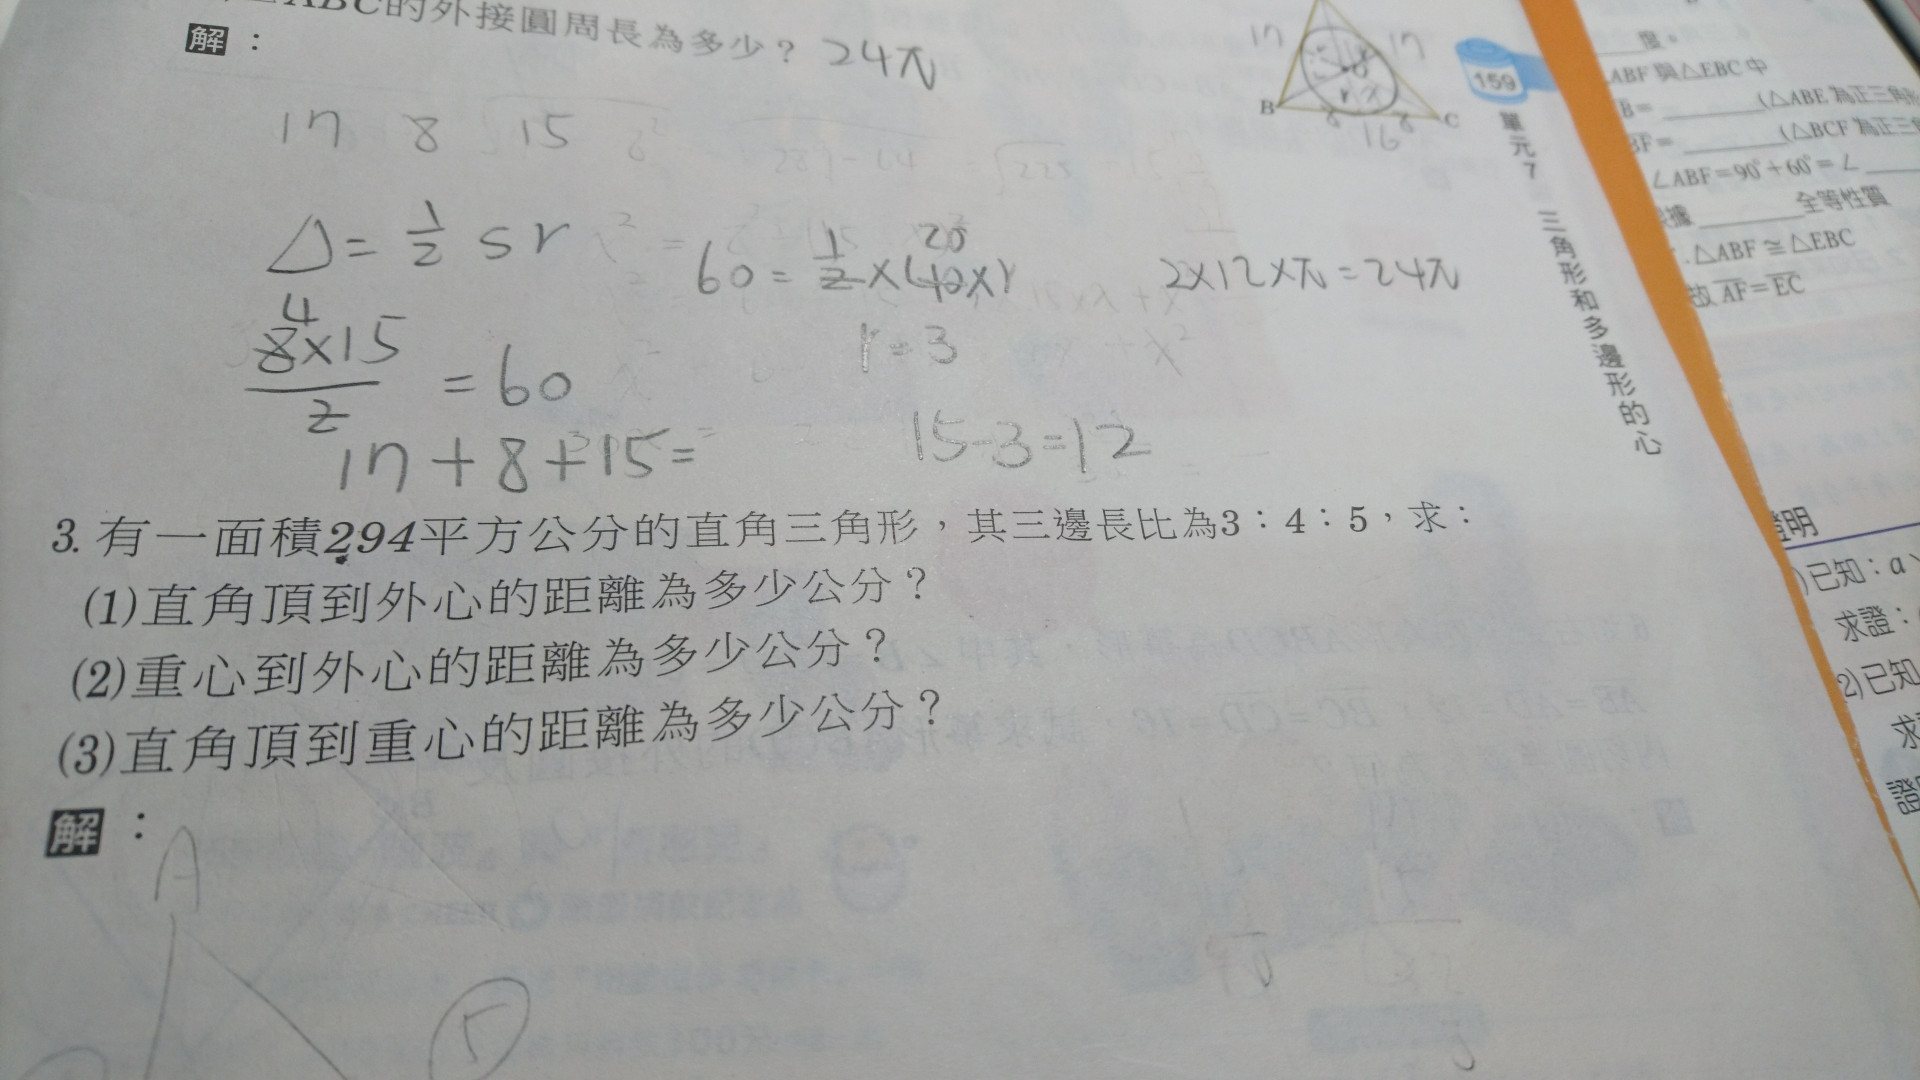 ABC的外接圓周長為多少？ 24π
解：
17 8 15
△= 1/2 sr
60 = 1/2 ×(40×r 20
2×12×π=24π
8×15/2 = 60
4
r=3
17+8+15=
15-3=12
17 17
B 8 16 8 C
3. 有一面積294平方公分的直角三角形，其三邊長比為3：4：5，求：
(1)直角頂到外心的距離為多少公分？
(2)重心到外心的距離為多少公分？
(3)直角頂到重心的距離為多少公分？
解：
A
5
159
單元7 三角形和多邊形的心
度。
ABF與△EBC中
B=______(△ABE為正三角
BF=______(△BCF為正三角
∠ABF=90°+60°=∠
據______全等性質
∴△ABF≅△EBC
故AF=EC
證明
)已知：a、
求證：
2)已知
求
證